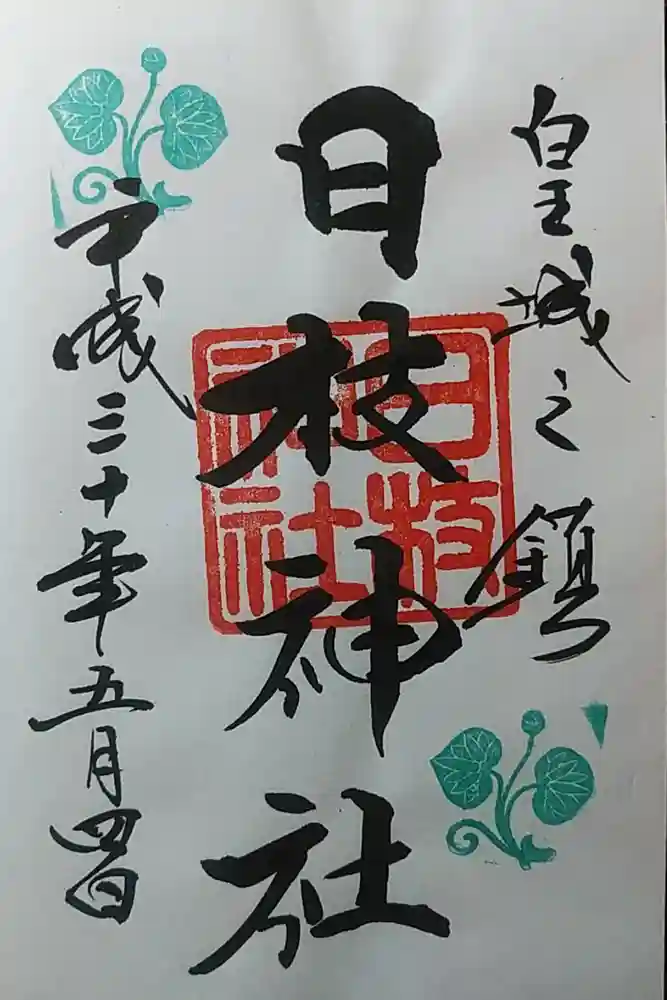 皇城之鎮
日枝神社
日枝
神社
平成三十年五月四日